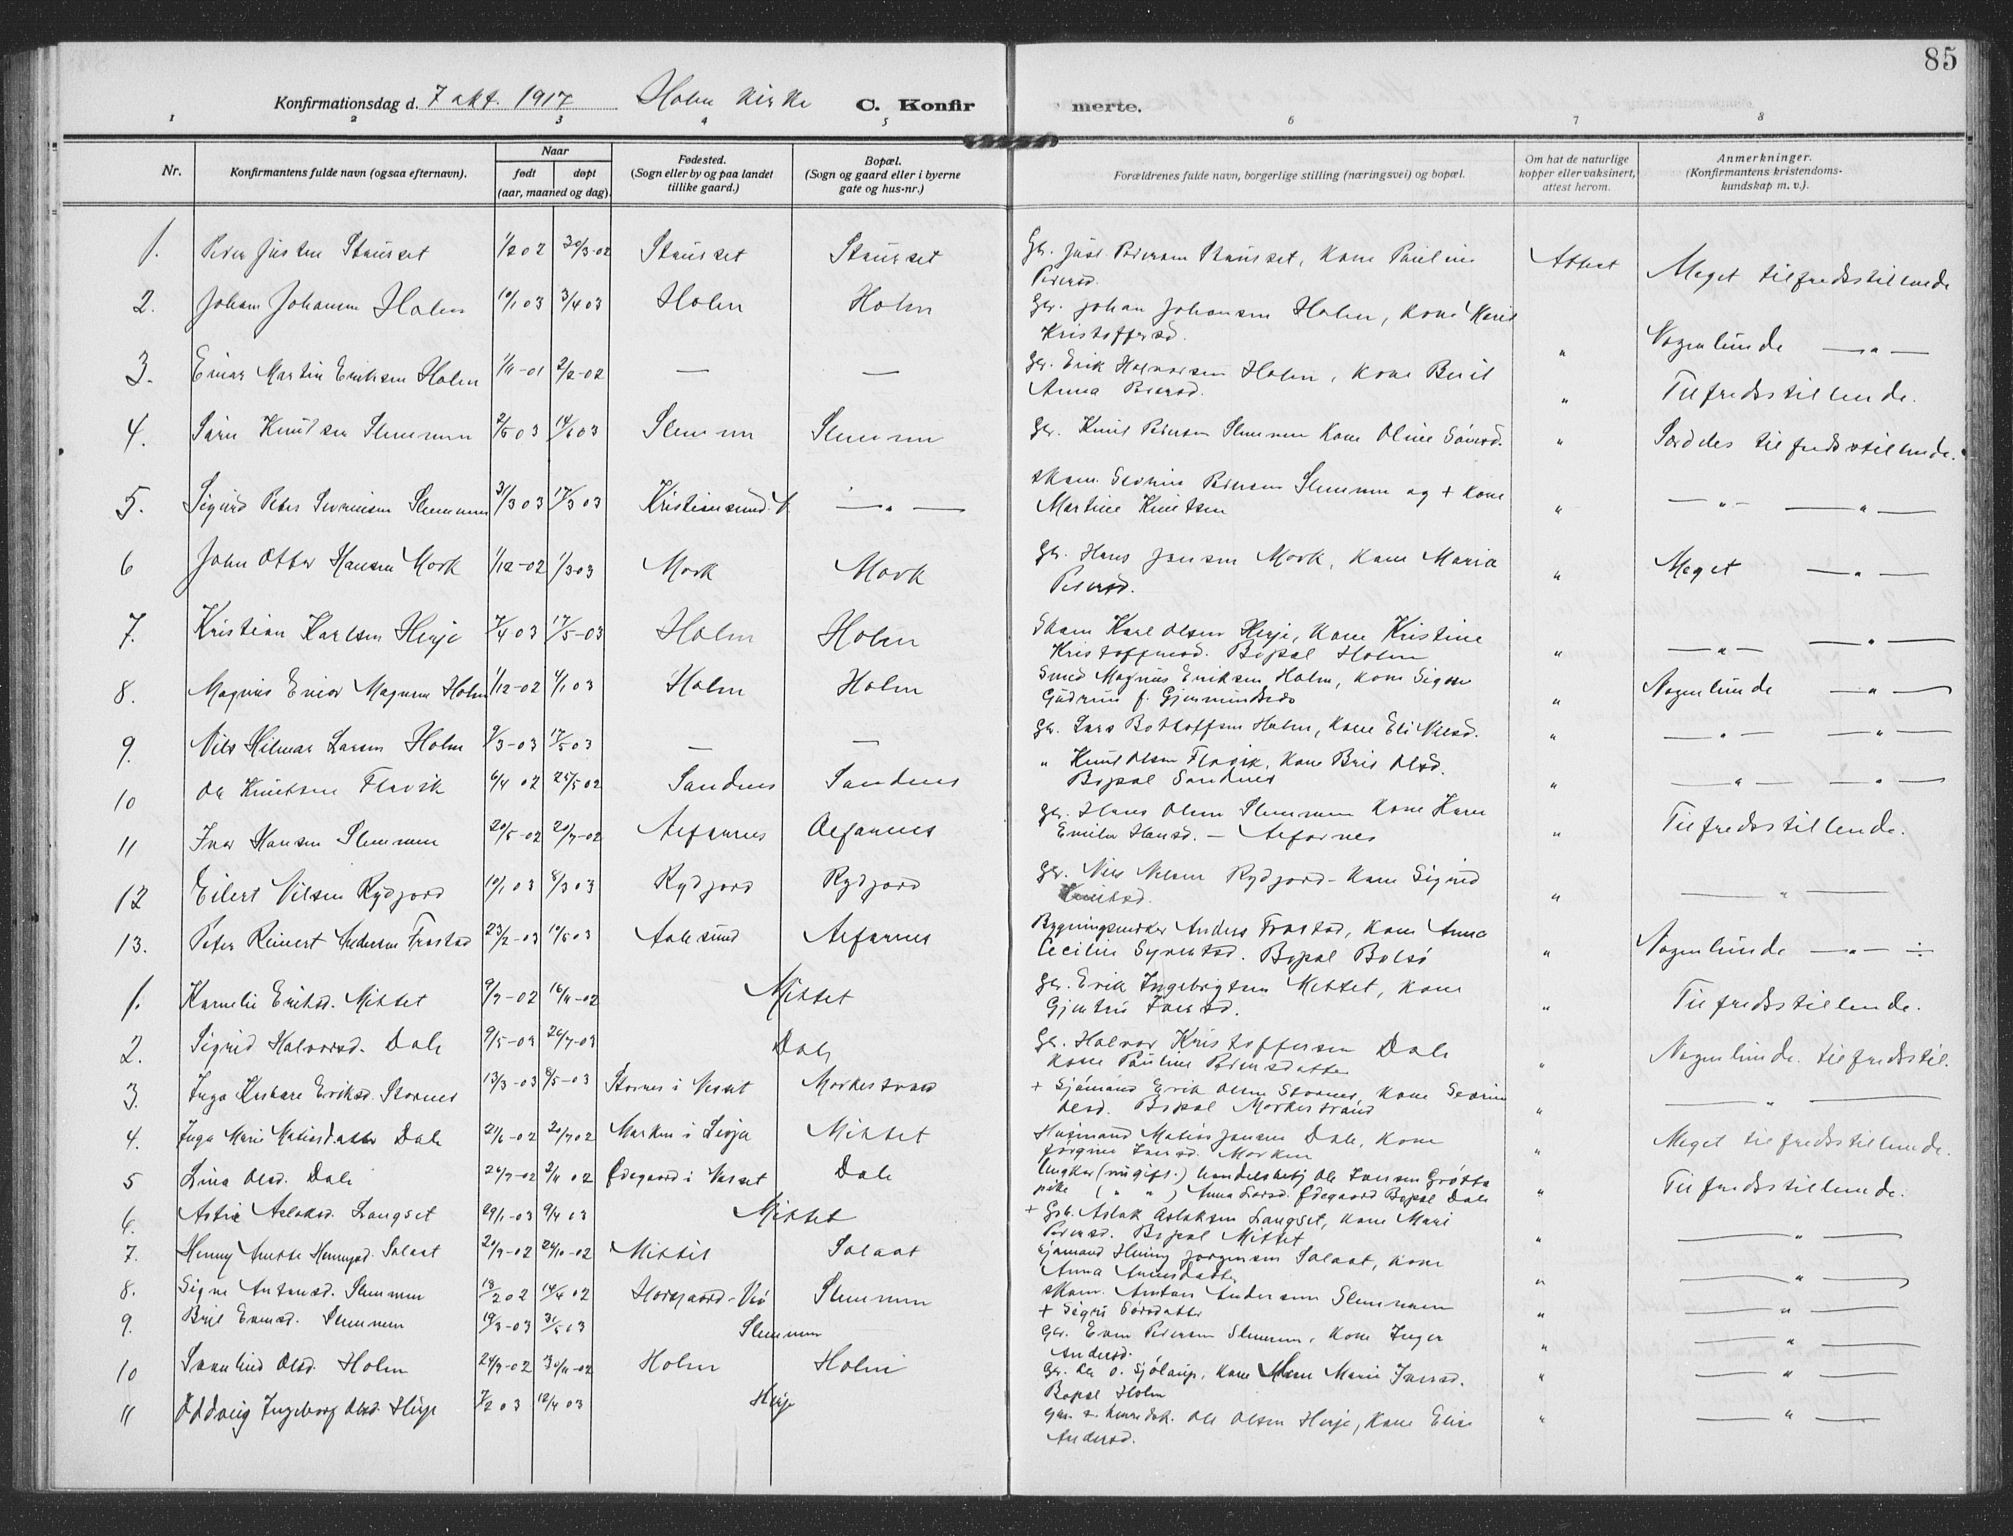 85
Konfirmationsdag d. 7 okt. 1917 Holm kirke C. Konfirmerte.
1 2 3 4 5 6 7 8
Nr. Konfirmantens fulde navn (ogsaa efternavn). Naar født døpt (aar, maaned og dag). Fødested. (Sogn eller by og paa landet tillike gaard.) Bopæl. (Sogn og gaard eller i byerne gate og hus-nr.) Forældrenes fulde navn, borgerlige stilling (næringsvei) og bopæl. Om hat de naturlige kopper eller vaksinert, attest herom. Anmerkninger. (Konfirmantens kristendomskundskap m. v.).
1. Peder Justen Stausset 1/2 02 30/3-02 Stausset Stausset Gbr. Just Pedersen Stausset, kone Pauline Pedersd. Attest Meget tilfredsstillende
2. Johan Johansen Holm 10/1 03 3/4 03 Holm Holm Gbr. Johan Johansen Holm, kone Marit Kristoffersd. " Nogenlunde — " —
3. Einar Martin Eriksen Holm 1/11-01 2/2-02 — — Gbr. Erik Halvorsen Holm, kone Beril Anna Pedersd. " Tilfredsstillende.
4. Søren Knutsen Slemmen 2/5 03 14/6 03 Slemmen Slemmen Gbr. Knut Pedersen Slemmen kone Oline Sørensd. " Særdeles tilfredsstillende.
5. Sigurd Peter Severinsen Slemmen 31/3 03 17/5 03 Kristiansund N. — " — Skom. Severin Pedersen Slemmen og + kone Martine Knutsen " — " — — " —
6 John Otter Hansen Mork 1/12-02 1/3 03 Mork Mork Gbr. Hans Jensen Mork, kone Maria Petersd. " Meget — " —
7. Kristian Karlsen Hirje 7/4 03 17/5-03 Holm Holm Skom Karl Olsen Hirje, kone Kristine Kristoffersd. Bopæl Holm " — " — — " —
8. Magnus Einar Magnusen Holm 1/12-02 4/1 03 Holm Holm Smed Magnus Eriksen Holm, kone Signe Gudrun f. Gjermundsd. " Nogenlunde — " —
9. Nils Hilmar Larsen Holm 9/3-03 17/5 03 — — Gbr. Lars Bottolfsen Holm, kone Eli Nilsd. " — " — — " —
10 Ole Knutsen Flovik 6/4 02 25/5 02 Sandnes Sandnes " Knut Olsen Flovik, kone Brit Olsd. Bopæl Sandnes " — " — — " —
11 Ivar Hansen Slemmen 20/5-02 20/7-02 Aafarnes Aafarnes Gbr. Hans Olsen Slemmen kone Karen Emilie Hansd. — Aafarnes " Tilfredsstillende.
12 Eilert Nilsen Rydjord 10/1 03 8/3 03 Rydjord Rydjord Gbr. Nils Nilsen Rydjord - kone Sigrid Knutsd. " — " —
13. Peter Reinert Andersen Frostad 23/2-03 10/5 03 Aalesund Aafarnes Bygningsmester Anders Frostad, kone Anna Cecilie Syvertsd. Bopæl Bolsø " Nogenlunde — " — ÷
1. Kornelie Eriksd. Mittet 9/7-02 16/11-02 Mittet Gbr. Erik Ingebrigtsen Mittet, kone Gjertrù Iversd. " Tilfredsstillende.
2. Sigrid Halvorsd. Dale 9/5-03 26/7-03 Dale Gbr. Halvor Kristoffersen Dale kone Pauline Pedersdatter " Nogenlunde tilfredsstil.
3. Inga Eriksd. Stornes 13/3-03 8/5-03 Stornes i Vesset Morkestrand + Sjømand Erik Olsen Stornes, kone Severine Olsd. Bopæl Morkestrand " — " —
4. Inga Marie Matiasdatter Dale 21/6-02 20/7 02 Morken i Sivja Mittet Husmand Matias Jensen Dale, kone Jørgine Iversd. Morken " Meget tilfredsstillende.
5 Lina Olsd. Dale 26/7-02 2/11 02 Ødegaard i Vesset Dale Ungkar (ungift.) handelsbetj Ole Iversen Grøtta pike ( " " ) Anna Larsd. Ødegaard Bopæl Dale " Tilfredsstillende.
6. Astri Aslaksd. Langset 29/1-03 9/4 03 Mittet + Gbr. Aslak Aslaksen Langset, kone Mari Pedersd. Bopæl Mittet " — " —
7. Henny Anette Henningsd. Solaat 20/9-02 26/10-02 Mittet Solaat Sjømand Hening Jørgensen Solaat, kone Anna Arnesdatter " — " —
8. Signe Antonsd. Slemmen 18/2 02 14/4 02 Horsgaard-Veø Slemmen Skom. Anton Andersen Slemmen + Sigri Larsdatter " — " —
9. Brit Evensd. Slemmen 19/3-03 31/5 03 Slemmen Gbr. Even Pedersen Slemmen, kone Inger Andersd. " — " —
10 Olsd. Holm 24/9-02 30/11-02 Holm Holm Gbr. Ole O. Sjølaup, kone Marie Iversd. Bopæl Holm " — " —
11 Oddveig Ingeborg Olsd. Hirje 7/2 03 12/4 03 Hirje Ole Olsen Hirje, kone Elise Andersd. " — " —